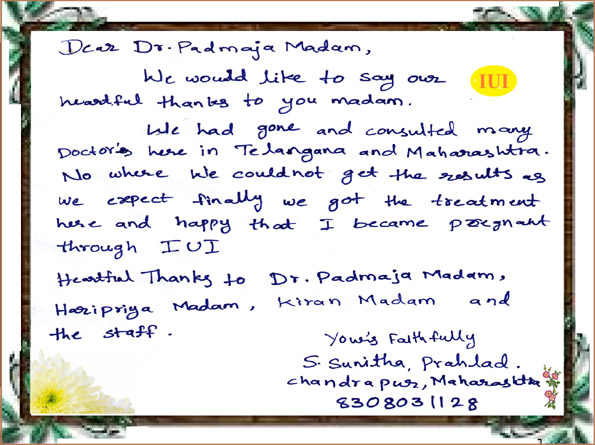 Dear Dr. Padmaja Madam,
We would like to say our
IUI
heartful thanks to you madam.
We had gone and consulted many
Doctor's here in Telangana and Maharashtra.
No where We couldnot get the results as
we expect finally we got the treatment
here and happy that I became pregnant
through IUI
Heartful Thanks to Dr. Padmaja Madam,
Haripriya Madam, Kiran Madam and
the staff.
Your's Faithfully
S. Sunitha, Prahlad.
Chandrapur, Maharashtra
8308031128